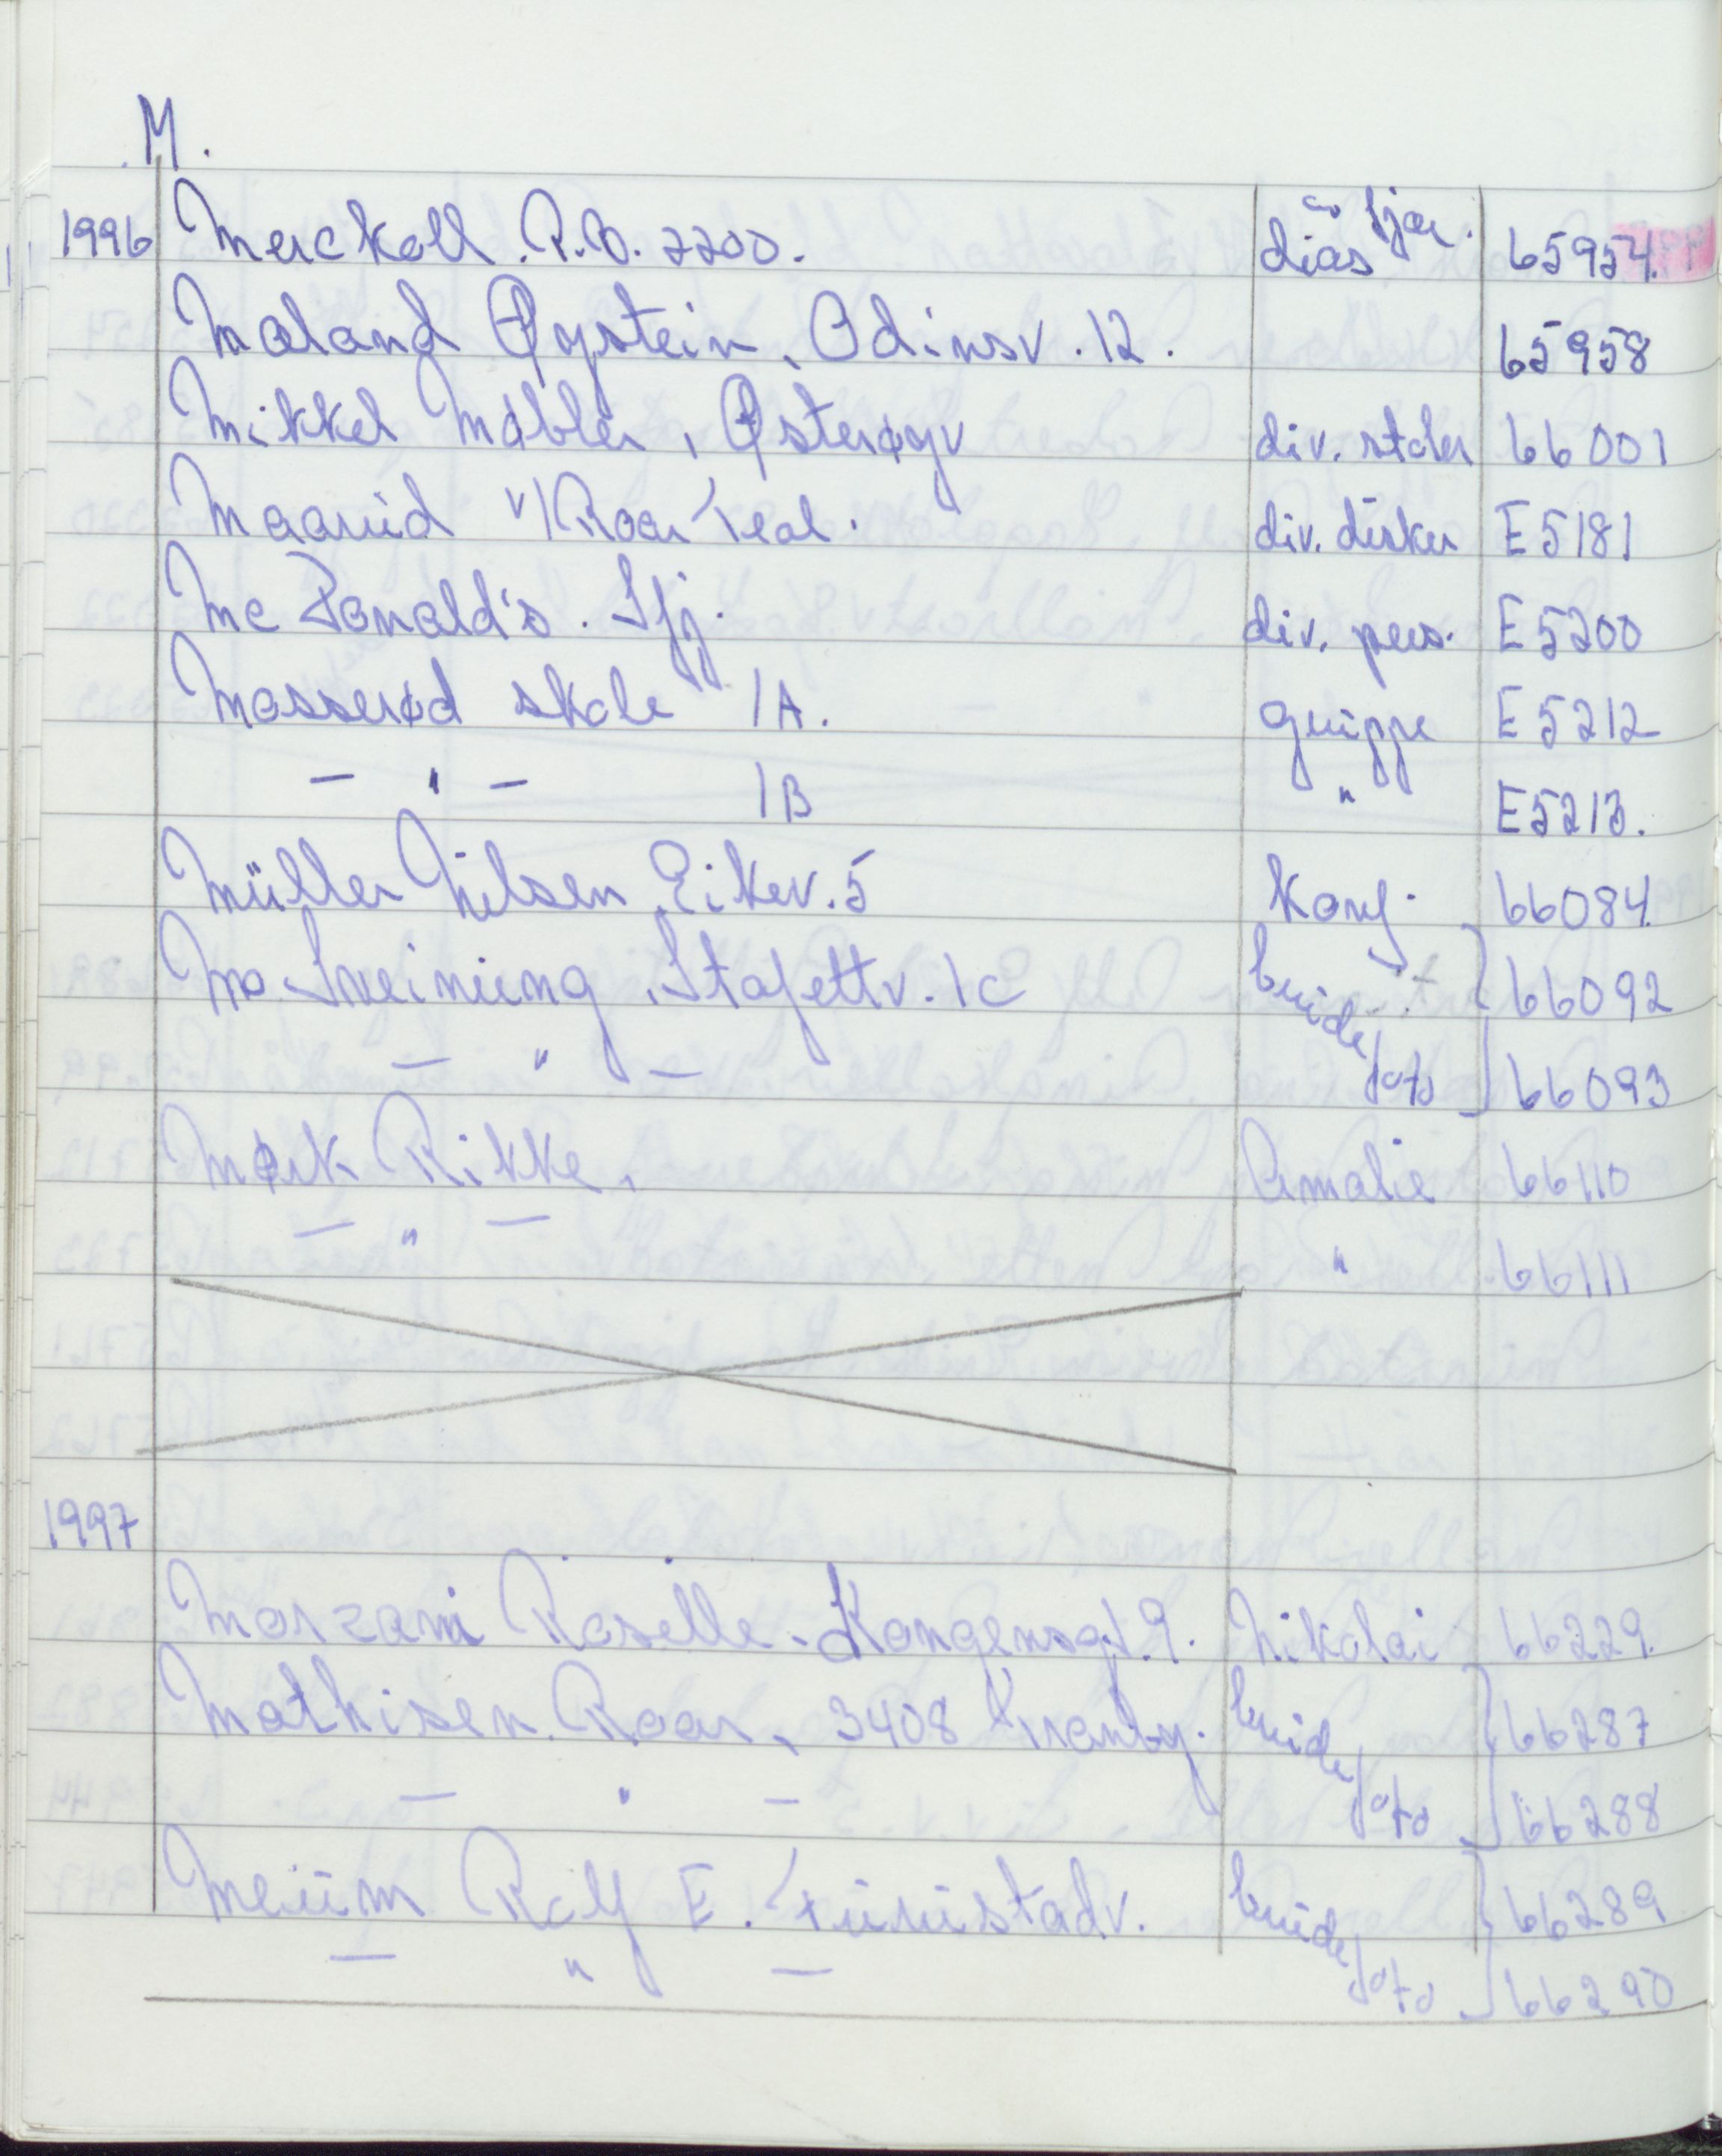 M.
1996 Merckoll. P.B. 2200. dias 65954.
Maland Øystein, Odinsv. 12. 65958
Mikkel Møbler, Østerøyv div. stoler 66001
Maarud v/Roar Teal. div. disker E5181
Mc Donald's. Sfj. div. pers. E5200
Mosserød skole 1A. gruppe E5212
— " — 1B " E5213.
Müller Nilsen, Eikev. 5 Konf. 66084.
Mo Sveinung, Stafettv. 1c brude 66092
— " — foto 66093
Mørk Rikke, Amalie 66110
— " — " 66111
1997
Marzani Roselle. Kongensgt. 9. Nikolai 66229.
Mathisen Roar, 3408 Tranby. brude 66287
— " — foto 66288
Meum Rolf E. Furustadv. brude 66289
— " — foto 66290